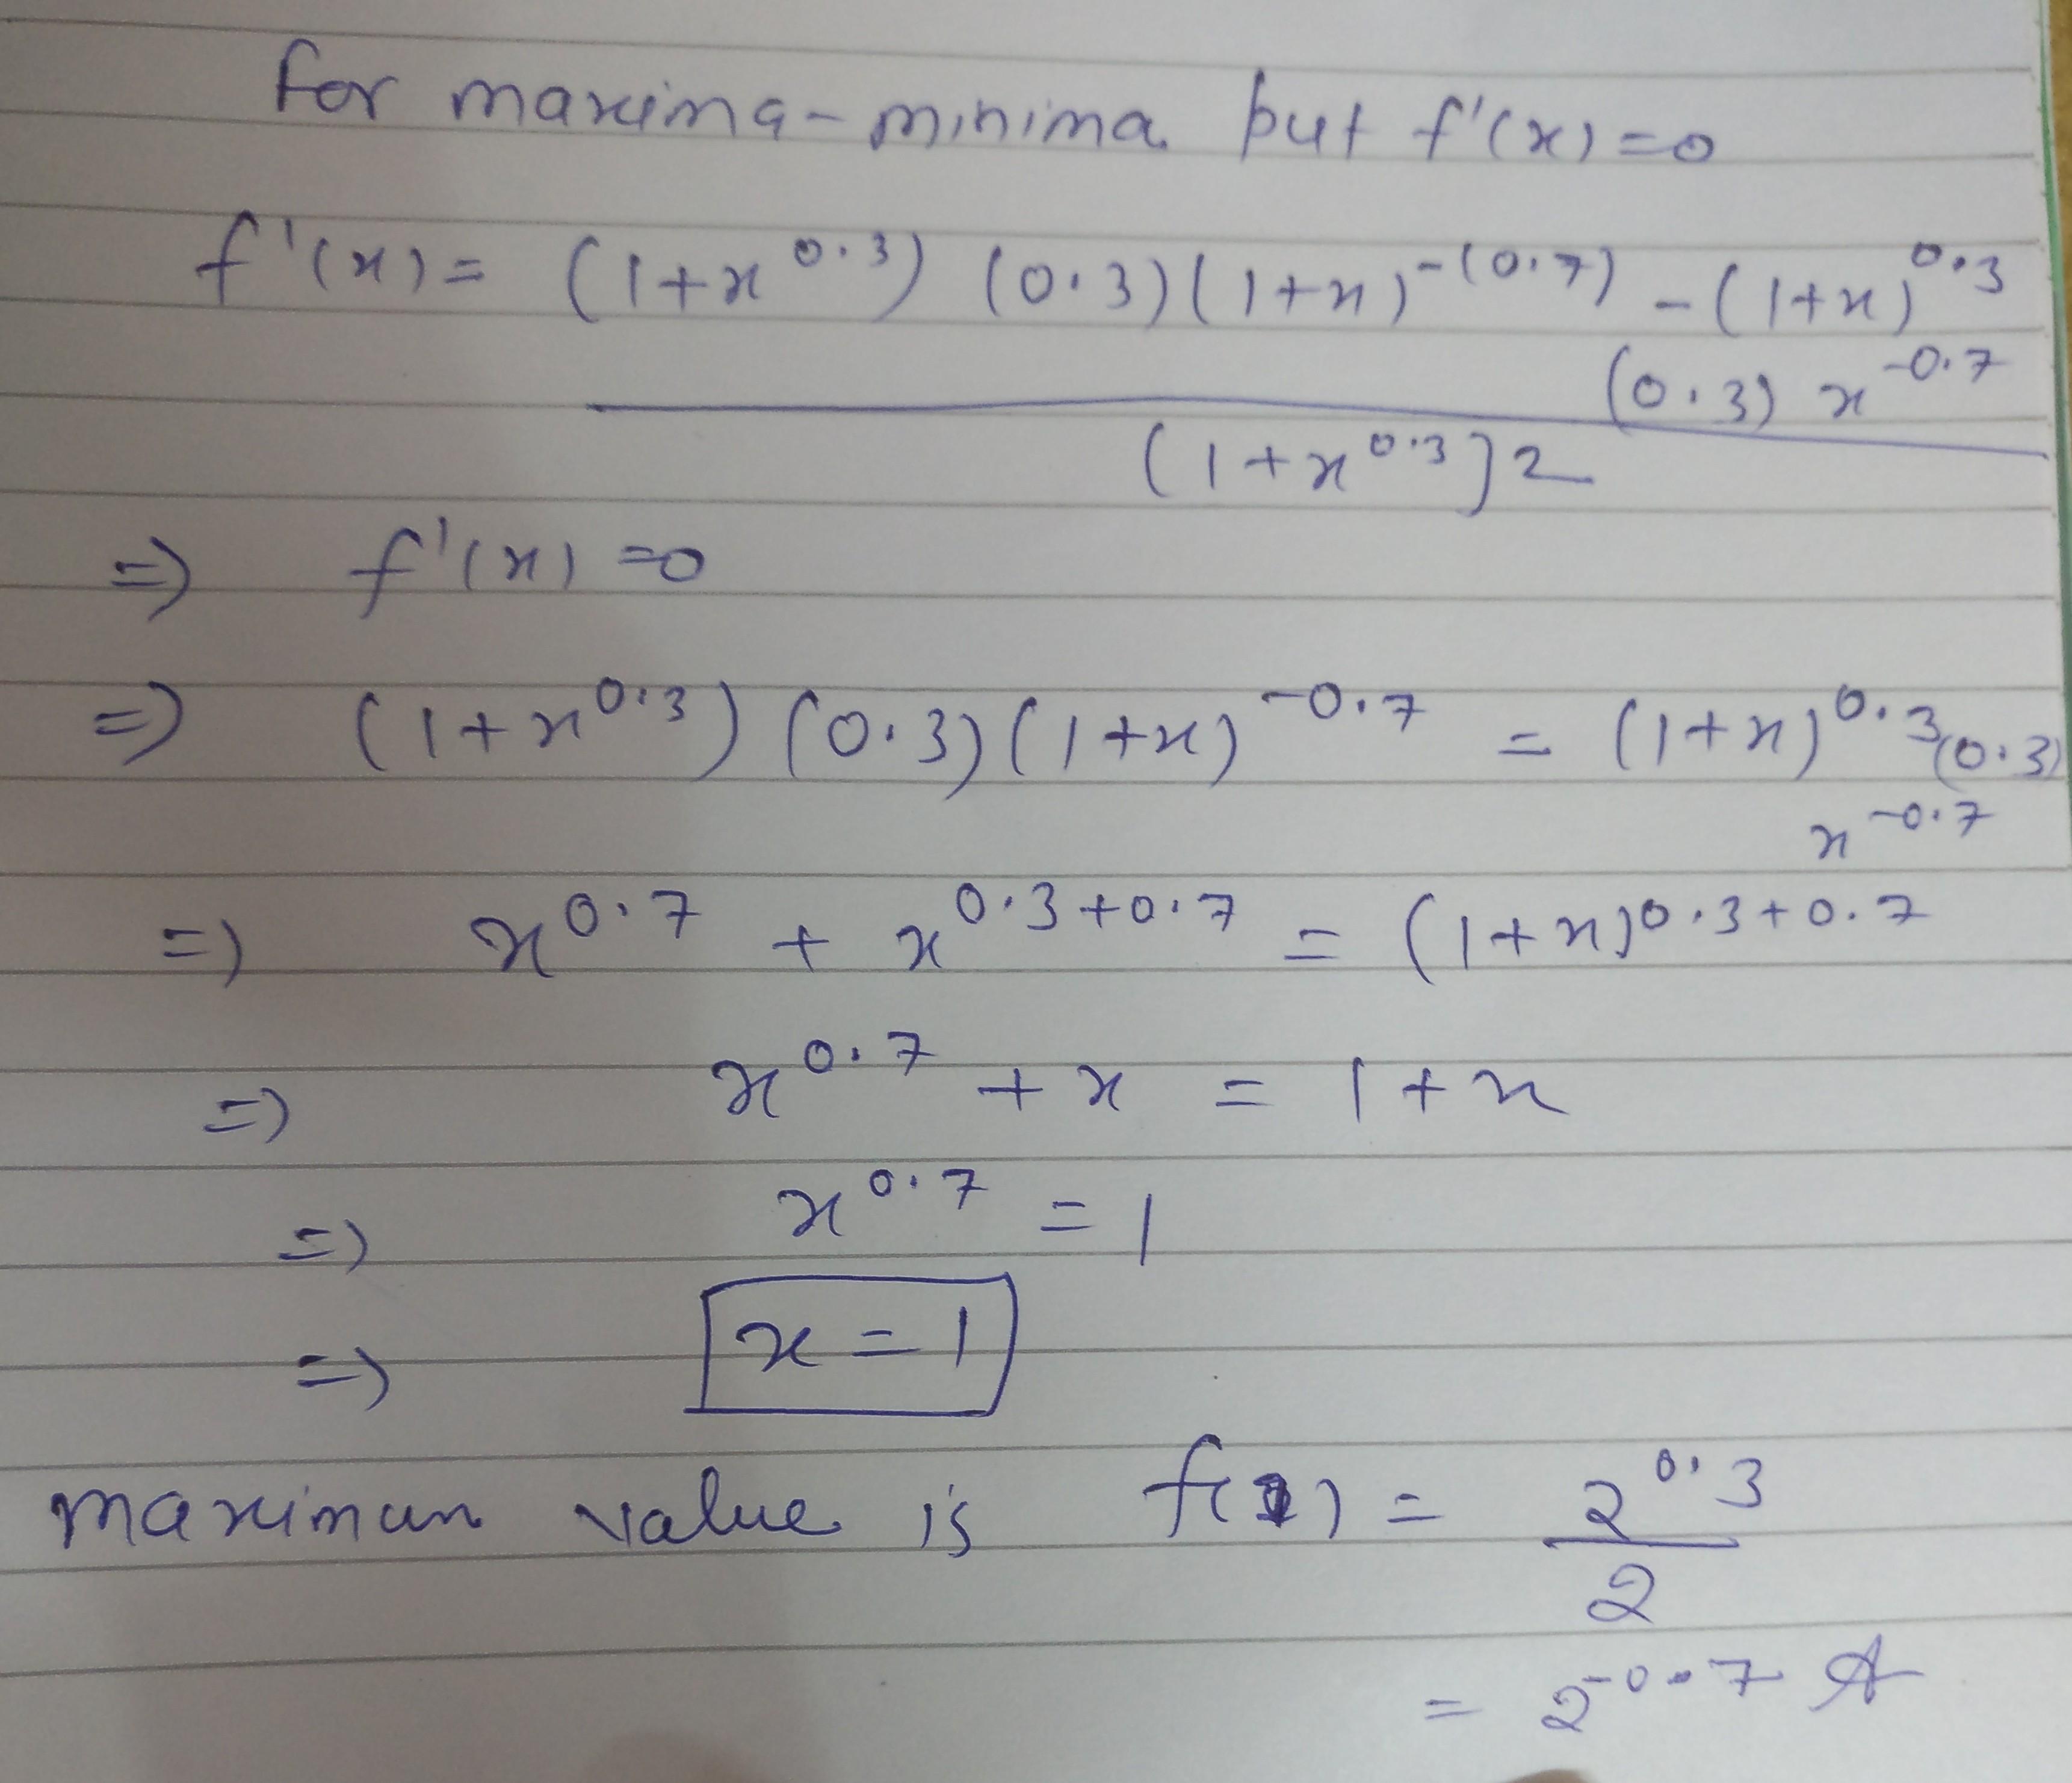 For maxima-minima put f'(x)=0
f'(x)= (1+x^0.3) (0.3)(1+x)^-(0.7) - (1+x)^0.3
(0.3) x^-0.7
(1+x^0.3)2
=> f'(x) =0
=> (1+x^0.3) (0.3)(1+x)^-0.7 = (1+x)^0.3(0.3)
x^-0.7
=> x^0.7 + x^0.3+0.7 = (1+x)^0.3+0.7
=> x^0.7 + x = 1+x
=> x^0.7 = 1
=> x = 1
maximum value is f(1) = 2^0.3
2
= 2^-0.7 A